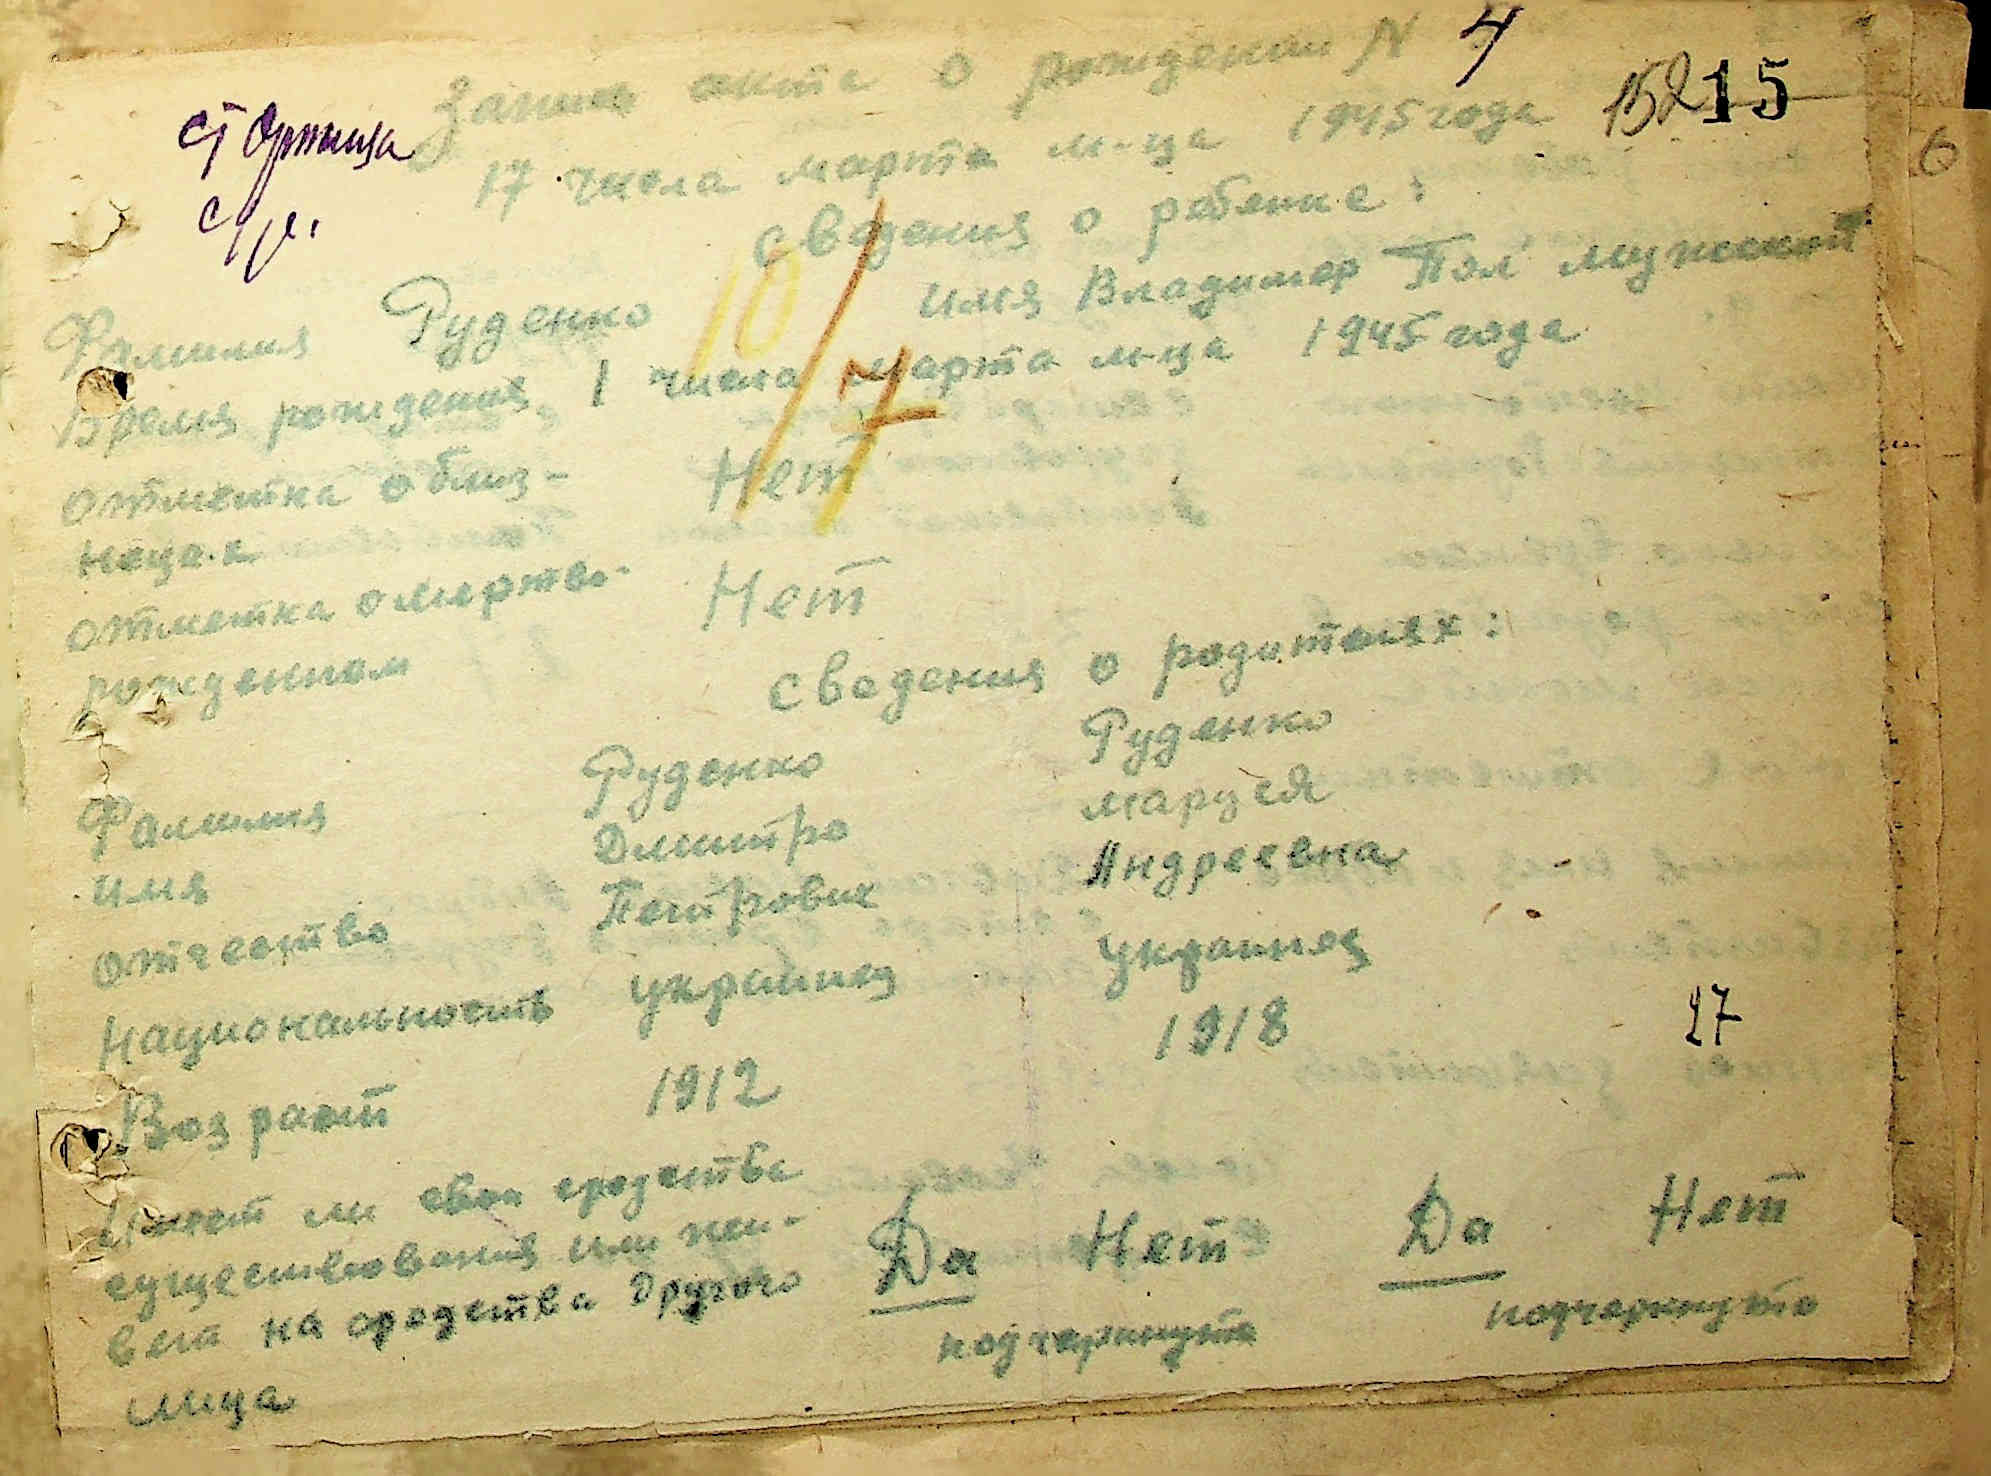 Запись акта о рождении N 4
15215
17 числа марта м-ца 1945 года
6
сведения о ребенке:
Фамилия Руденко имя Владимер Пол мужской
Время рождения 1 числа марта м-ца 1945 года
10/7
отметка о близ- Нет
нецах
отметка о мертво- Нет
рожденном
сведения о родителях:
Фамилия Руденко Руденко
имя Дмитро Маруся
отчество Петрович Андреевна
Национальность украинец украинец
Возраст 1912 1918 27
Имеет ли свои средства
существования или жи- Да Нет Да Нет
вет на средства другого
подчеркнуто подчеркнуто
лица